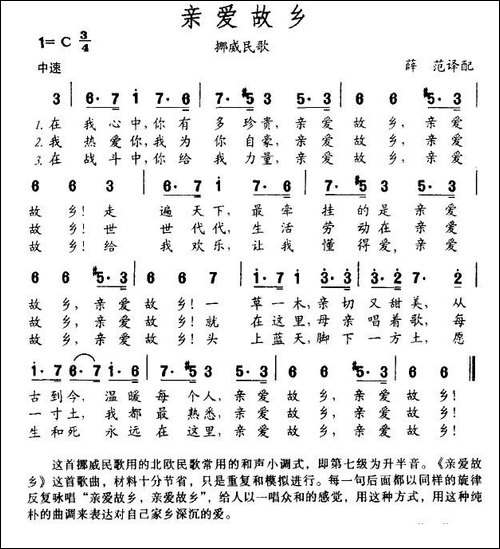 亲爱故乡
1=C 3/4
挪威民歌
中速
薛 范译配
3 | 6·7 i 7·6 | 7·#5 3 #5·3 | 6 6 #5·3 |
1.在 我心中,你有 多珍贵,亲爱 故乡,亲爱
2.我 热爱你,我为 你自豪,亲爱 故乡,亲爱
3.在 战斗中,你给 我力量,亲爱 故乡,亲爱
故乡!走 遍天下,最牵 挂的是亲爱
故乡!世 世代代,生活 劳动在亲爱
故乡!给 我欢乐,让我 懂得爱,亲爱
故乡,亲爱 故乡!一 草一木,亲切 又甜美,从
故乡,亲爱 故乡!就 在这里,母亲 唱着歌,每
故乡,亲爱 故乡!头 上蓝天,脚下 一方土,愿
古到今,温暖 每个人,亲爱 故乡,亲爱 故乡!
一寸土,我都 最熟悉,亲爱 故乡,亲爱 故乡!
生和死 永远 在这里,亲爱 故乡,亲爱 故乡!
这首挪威民歌用的北欧民歌常用的和声小调式,即第七级为升半音。《亲爱故
乡》这首歌曲,材料十分节省,只是重复和模拟进行。每一句后面都以同样的旋律
反复咏唱“亲爱故乡,亲爱故乡”,给人以一唱众和的感觉,用这种方式,用这种纯
朴的曲调来表达对自己家乡深沉的爱。